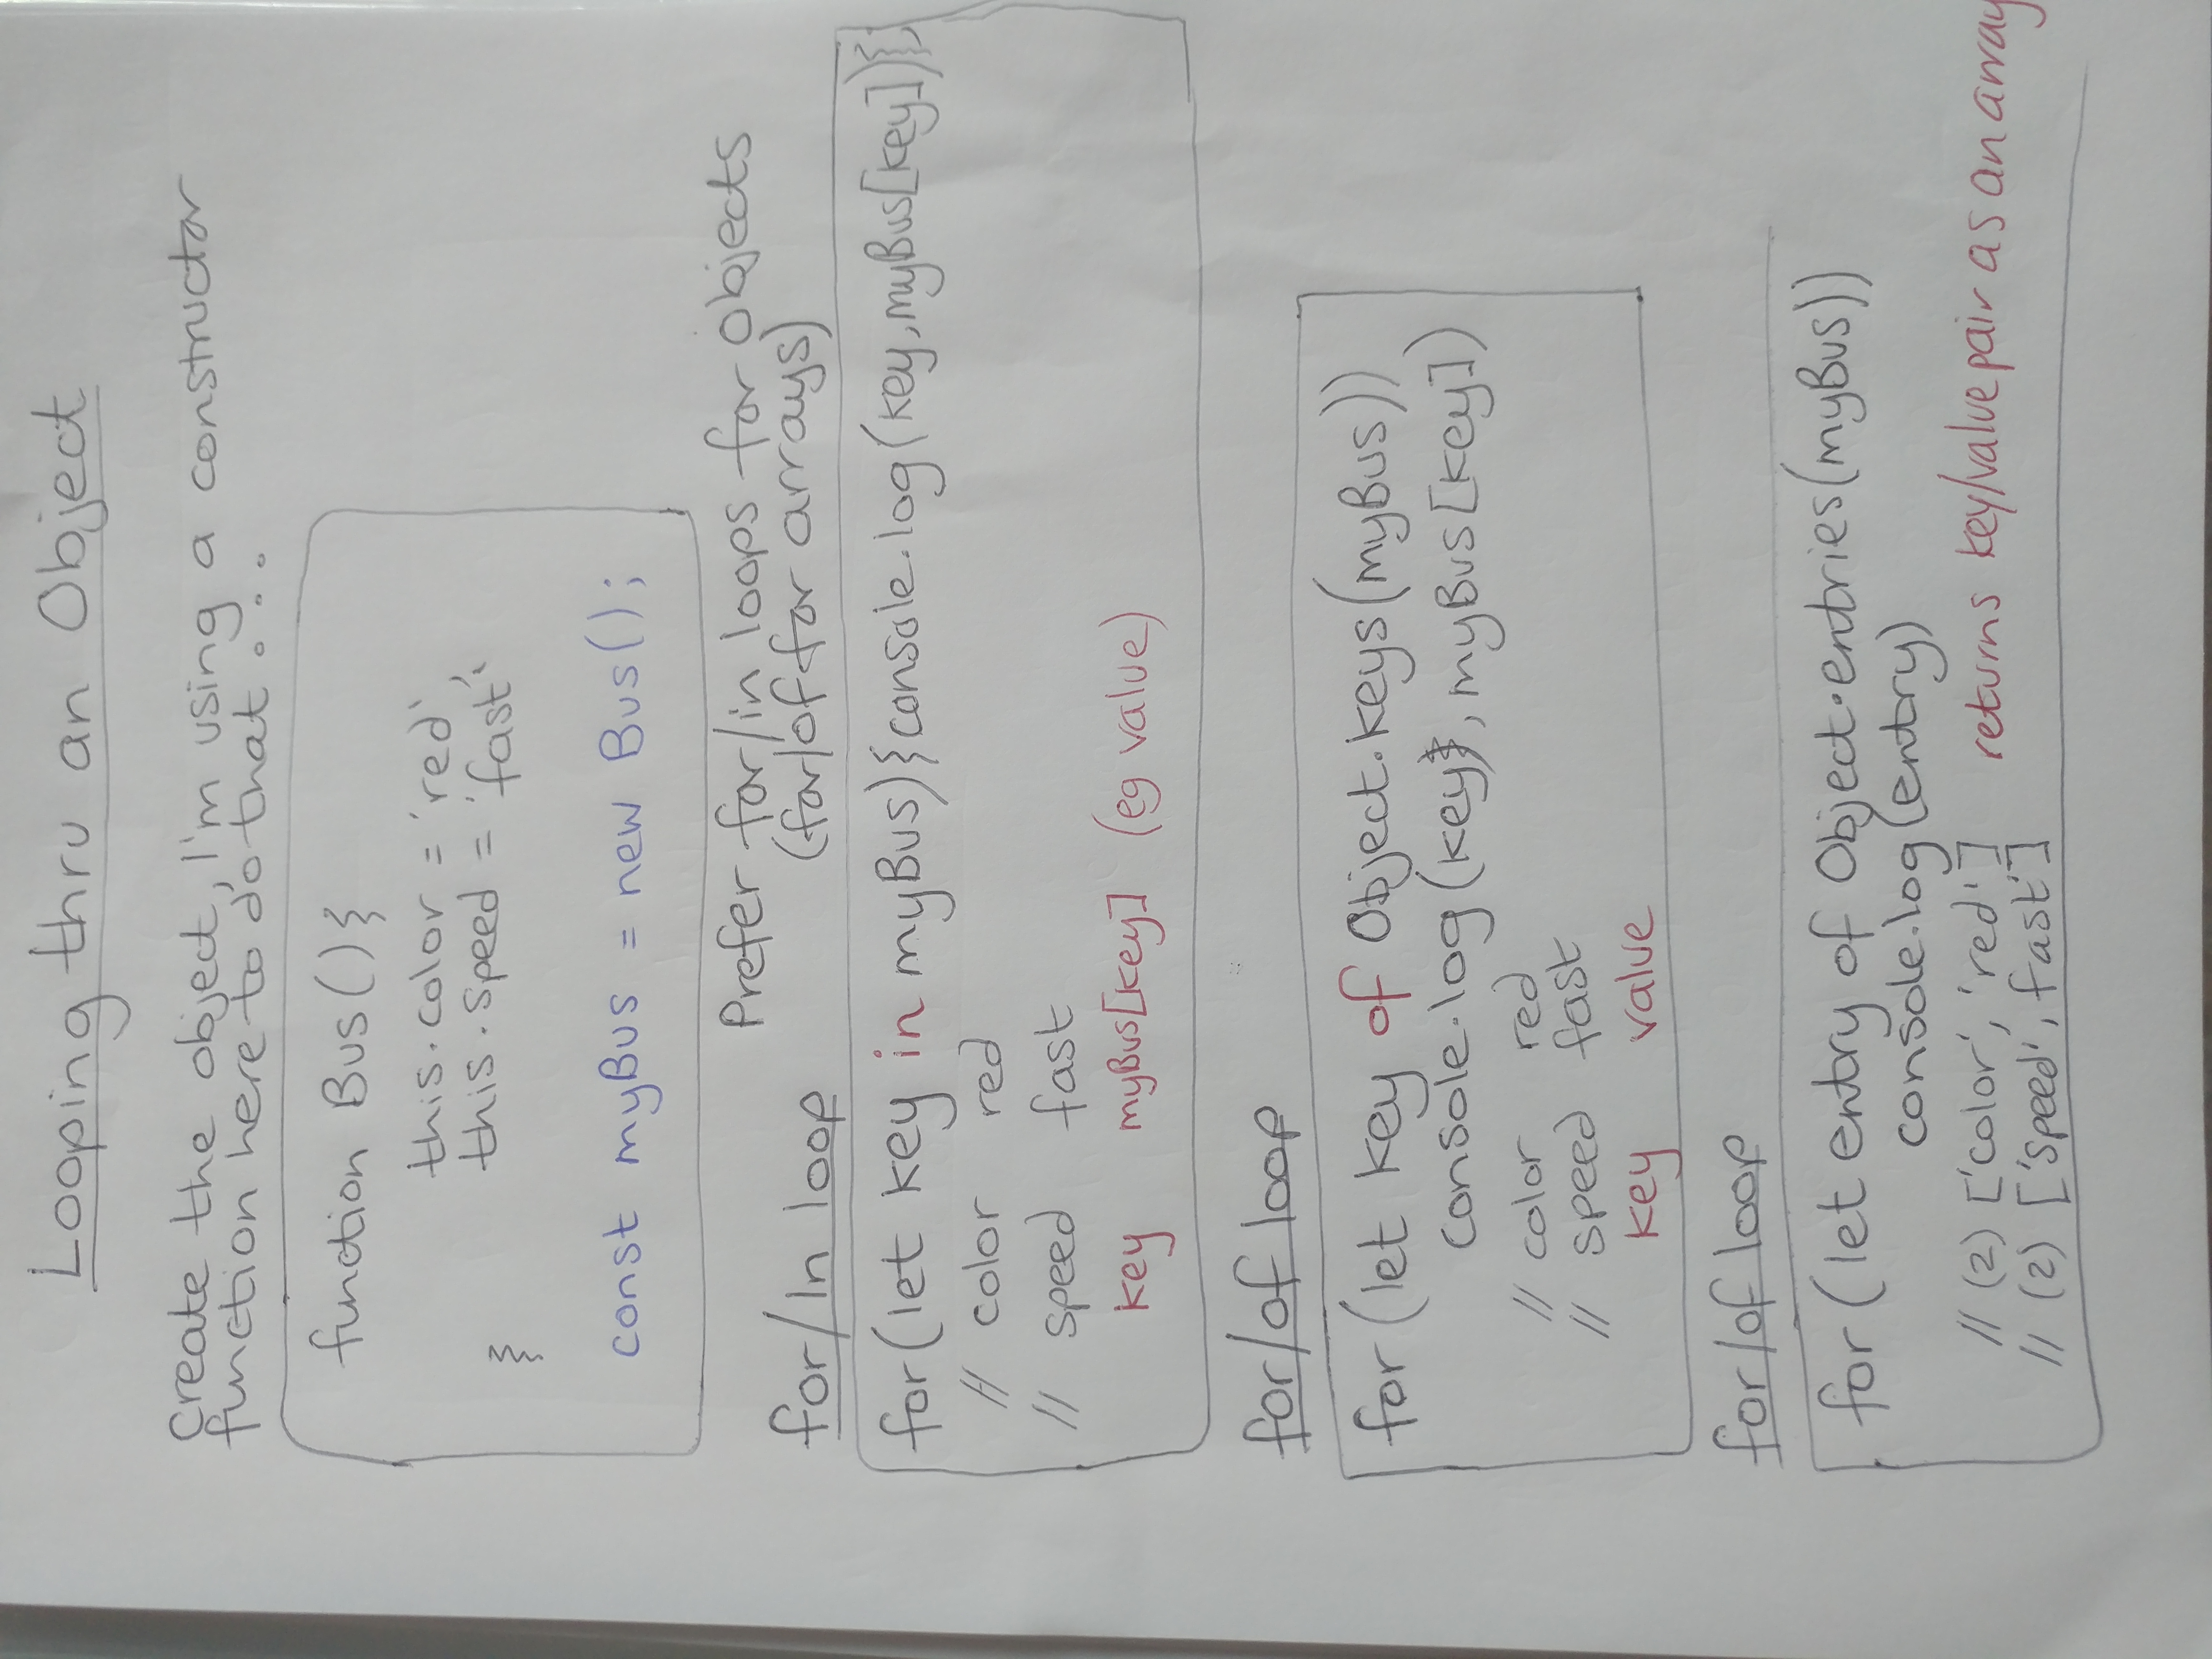 Looping thru an Object
Create the object, I'm using a constructor
function here to do that...
function Bus(){
this.color = 'red'
this.speed = 'fast';
}
const myBus = new Bus();
Prefer for/in loops for objects
for/in loop (for/of for arrays)
for(let key in myBus){console.log(key,myBus[key])};
// color red
// speed fast
key myBus[key] (eg value)
for/of loop
for (let key of Object.keys(myBus))
console.log(key, myBus[key])
// color red
// speed fast
key value
for/of loop
for (let entry of Object.entries(myBus))
console.log(entry)
// (2) ['color', 'red'] returns key/value pair as an array
// (2) ['speed', fast']